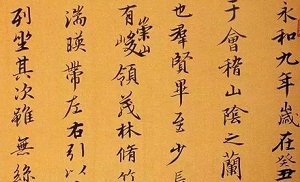 永和九年歲在癸丑
于會稽山陰之蘭
也羣賢畢至少長
有崇山峻領茂林脩竹
湍暎帶左右引以
列坐其次雖無絲